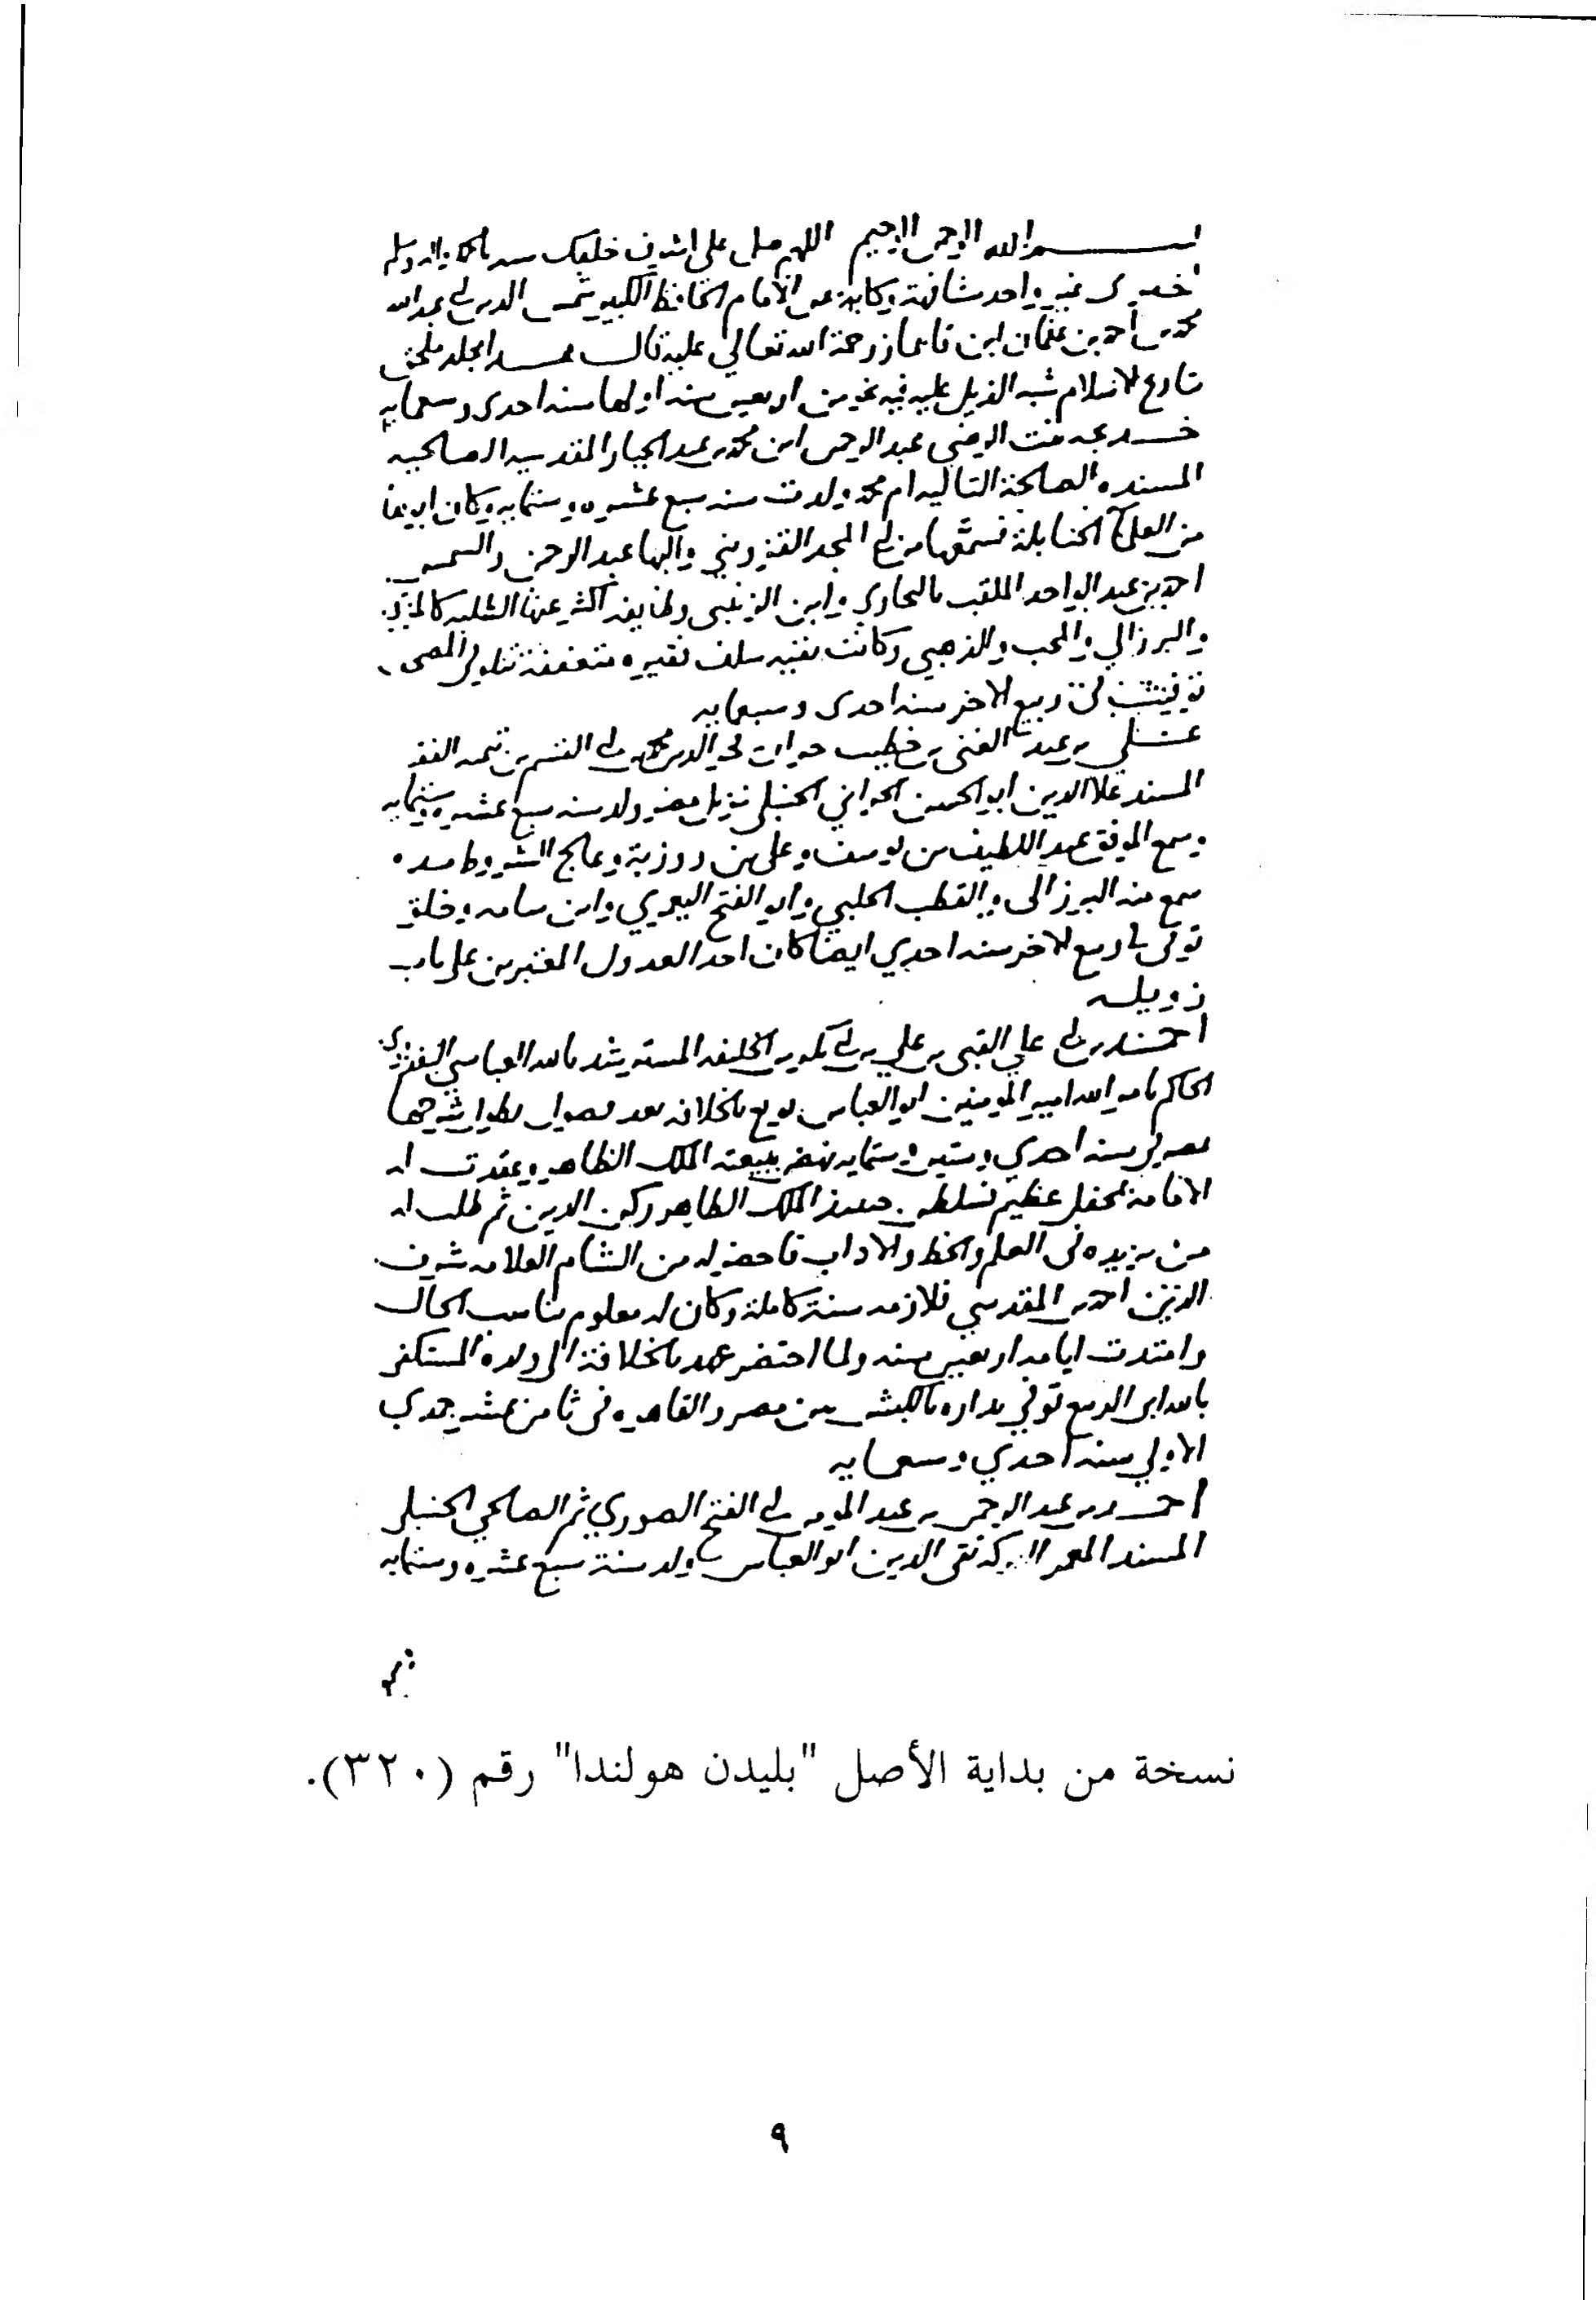 بسم الله الرحمن الرحيم اللهم صل على اشرف خلقك سيدنا محمد واله وسلم
اخبرني غير واحد مشافهة وكتابة عن الامام الحافظ الكبير شمس الدين ابي عبد الله
محمد بن احمد بن عثمان ابن قايماز رحمة الله تعالي عليه قال هذا مجلد ملحق
بتاريخ الاسلام شبه الذيل عليه فيه نحو من اربعين سنه اولها سنه احدى وسبعمايه
خديجه بنت الرضي عبد الرحمن ابن محمد بن عبد الجبار المقدسيه الصالحيه
المسنده الصالحة التاليه ام محمد ولدت سنه سبع عشره وستمايه وكان ابوها
من العلماء الحنابلة فسمعها من المجد القزويني والبها عبد الرحمن والشمس
احمد بن عبد الواحد الملقب بالبخاري وابن الزبيدي وطايفه اكثر عنها الطلبه كالمزي
والبرزالي والمحب والذهبي وكانت بقيه سلف فقيره متعففة
توفيت في ربيع الاخر سنه احدى وسبعمايه
علي بن عبد الغني بن خطيب حران فخر الدين محمد بن ابي القسم بن تيميه
المسند علا الدين ابو الحسن الحراني الحنبلي نزيل مصر ولد سنه سبع عشره وستمايه
وسمع الموفق عبد اللطيف بن يوسف وعلي بن روزبة وعالج الشروط مده
سمع منه البرزالي والقطب الحلبي وابو الفتح اليعمري وابن سامه وخلق
توفي في ربيع الاخر سنه احدي ايضا كان احد العدول المعتبرين على باب
زويله
احمد بن ابي علي القبي بن علي بن ابي بكر بن الخليفه المسترشد بالله العباسي البغدادي
الحاكم بامر الله امير المومنين ابو العباس بويع بالخلافه بعد
بمصر في سنه احدي وستين وستمايه نهض ببيعته الملك الظاهر وعقدت له
الامامة بمحفل عظيم فسلطن حينئذ الملك الظاهر ركن الدين ثم طلب له
من يزيده في العلم والخط والاداب فاحضر له من الشام العلامه شرف
الدين احمد بن المقدسي فلازمه سنة كاملة وكان له معلوم يناسب الحال
وامتدت ايامه اربعين سنه ولما احتضر عهد بالخلافة الى ولده المستكفي
بالله ابي الربيع توفي بداره بالكبش بين مصر والقاهره في ثامن عشر جمدي
الاولي سنه احدي وسبعمايه
احمد بن عبد الرحمن بن عبد المومن بن ابي الفتح الصوري ثم الصالحي الحنبلي
المسند المعمر البركة تقي الدين ابو العباس ولد سنة سبع عشره وستمايه
نسخة من بداية الأصل "بليدن هولندا" رقم (٣٢٠).
٩